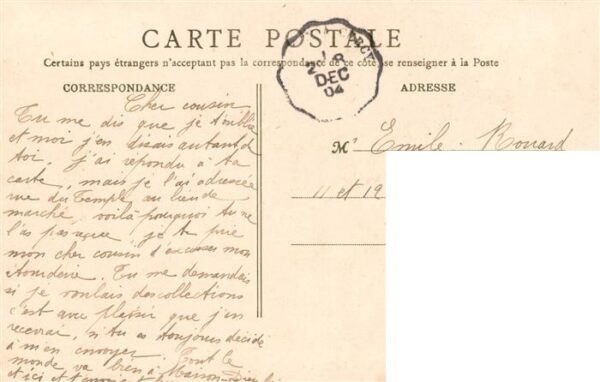 CARTE POSTALE
Certains pays étrangers n'acceptant pas la correspondance de ce côté se renseigner à la Poste
CORRESPONDANCE
ADRESSE
18
2
DEC
04
Cher cousin
Tu me dis que je t'oublie
et moi j'en disais autant de
toi, j'ai repondu à ta
carte, mais je l'ai adressée
rue du Temple au lieu de
marché, voilà pourquoi tu ne
l'as pas reçue, je te prie
mon cher cousin d'excuser mon
étourderie. Tu me demandais
si je voulais des collections
c'est avec plaisir que j'en
recevrai, si tu es toujours décidé
à m'en envoyer. Tout le
monde va bien à Maison
et ici et
Mr Emile Rouard
11 et 19